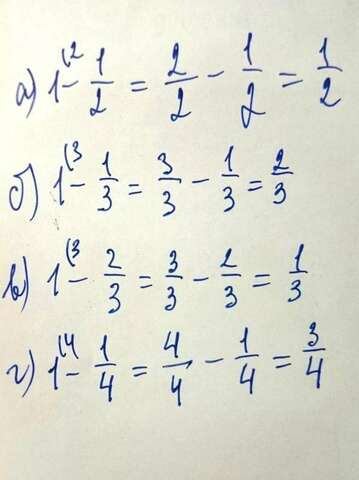 а) 1⁽² - 1/2 = 2/2 - 1/2 = 1/2
б) 1⁽³ - 1/3 = 3/3 - 1/3 = 2/3
в) 1⁽³ - 2/3 = 3/3 - 2/3 = 1/3
г) 1⁽⁴ - 1/4 = 4/4 - 1/4 = 3/4